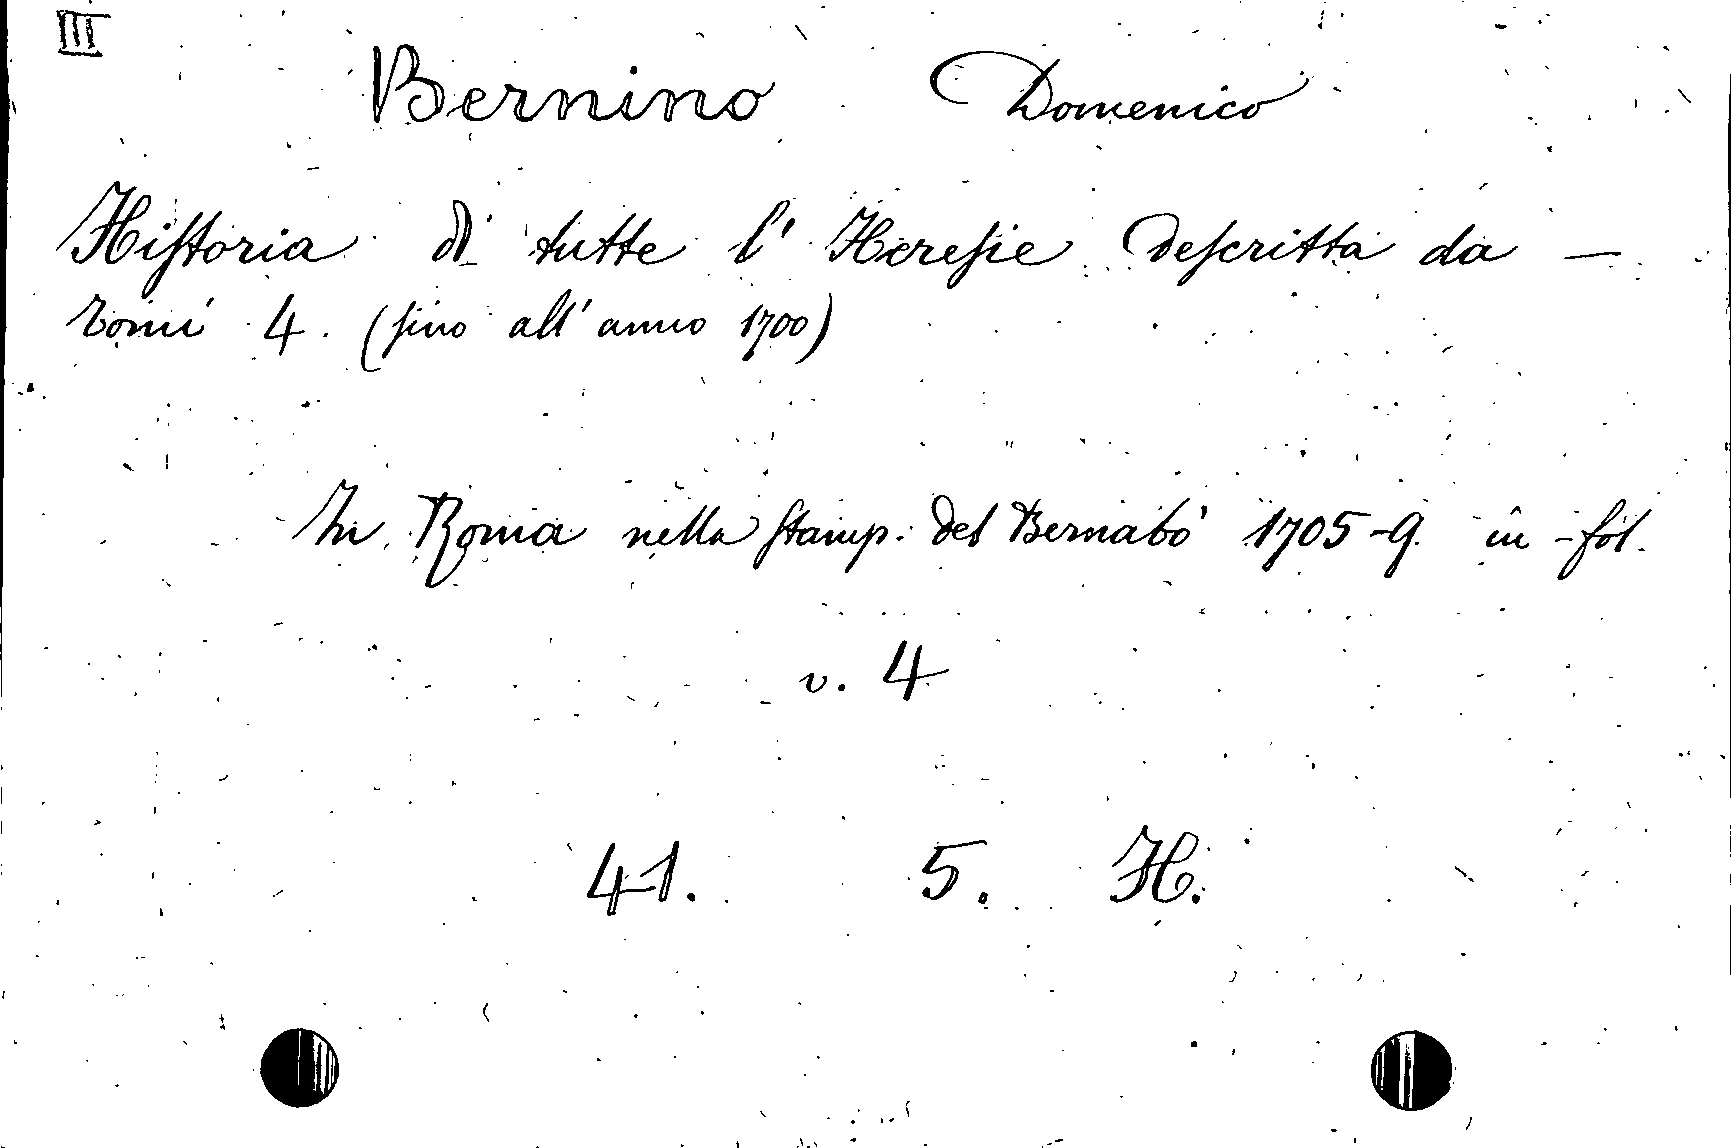 III
Bernino Domenico
Hiſtoria di tutte l' Hereſie deſcritta da —
tomi 4. (ſino all' anno 1700)
In Roma nella ſtamp. del Bernabò 1705-9 in-fol.
v. 4
41. 5. H.